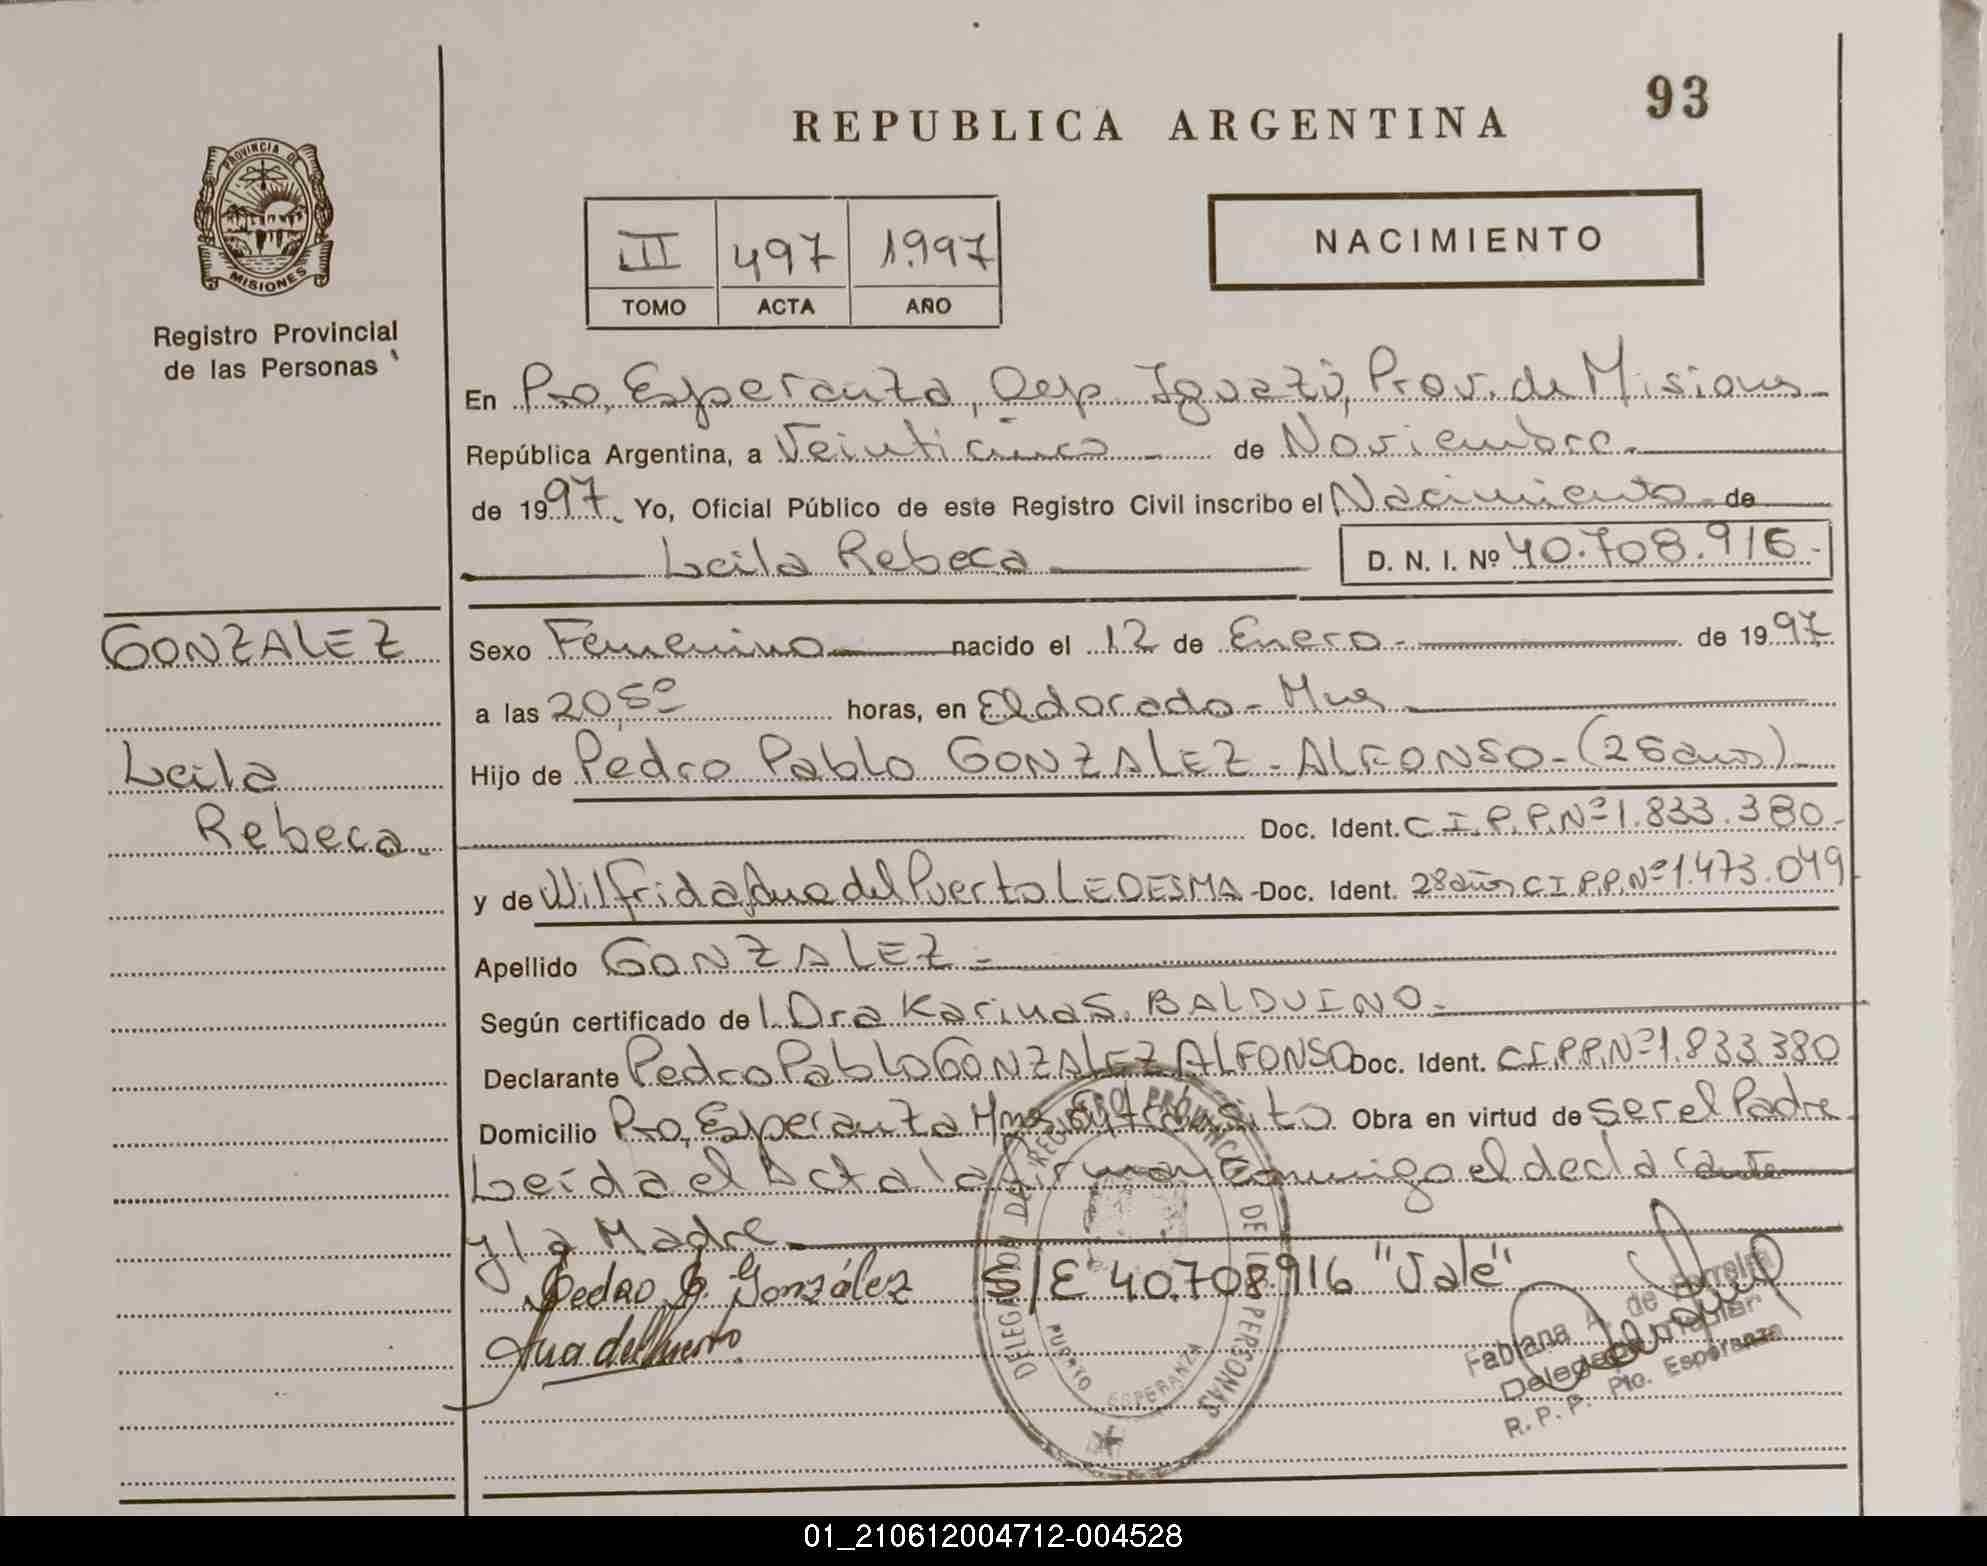 93
REPUBLICA ARGENTINA
PROVINCIA DE
MISIONES
Registro Provincial
de las Personas
III 497 1.997
TOMO ACTA AÑO
NACIMIENTO
En Pto, Esperanza, Dep. Iguazú, Prov. de Misiones
República Argentina, a Veinticinco de Noviembre.
de 1997. Yo, Oficial Público de este Registro Civil inscribo el Nacimiento de
Leila Rebeca
D. N. I. Nº 40.708.916.-
GONZALEZ
Leila
Rebeca.
Sexo Femenino nacido el 12 de Enero.- de 1997
a las 20,50 horas, en Eldorado- Mnes
Hijo de Pedro Pablo GONZALEZ-ALFONSO-(26 años)
Doc. Ident. C.I.P.P.Nº 1.833.380-
y de Wilfrida Ana del Puerto LEDESMA - Doc. Ident. 28 años C I P.P.Nº 1.473.049
Apellido GONZALEZ-
Según certificado de l. Dra Karina S. BALDUINO.-
Declarante Pedro Pablo GONZALEZ ALFONSO Doc. Ident. C I.P.P.Nº 1.833.380
Domicilio Pto, Esperanza Mnes Obra en virtud de ser el Padre.
Leída el Acta la firman conmigo el declarante
y la Madre
Pedro P. González
S/E 40.708.916 "Vale"
Ana del Puerto
DELEGACION DEL REGISTRO PROVINCIAL DE LAS PERSONAS
PUERTO ESPERANZA
Fabiana A. de
Delegada Titular
R. P. P. Pto. Esperanza
01_210612004712-004528